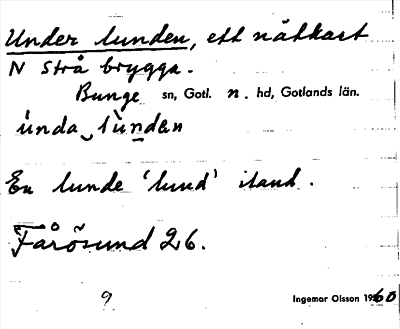 Under lunden, ett nätkast
N Strå brygga.
Bunge sn, Gotl. n. hd, Gotlands län.
ùnda‿lùnden
En lunde 'lund' iland.
Fårösund 26.
9
Ingemar Olsson 1960